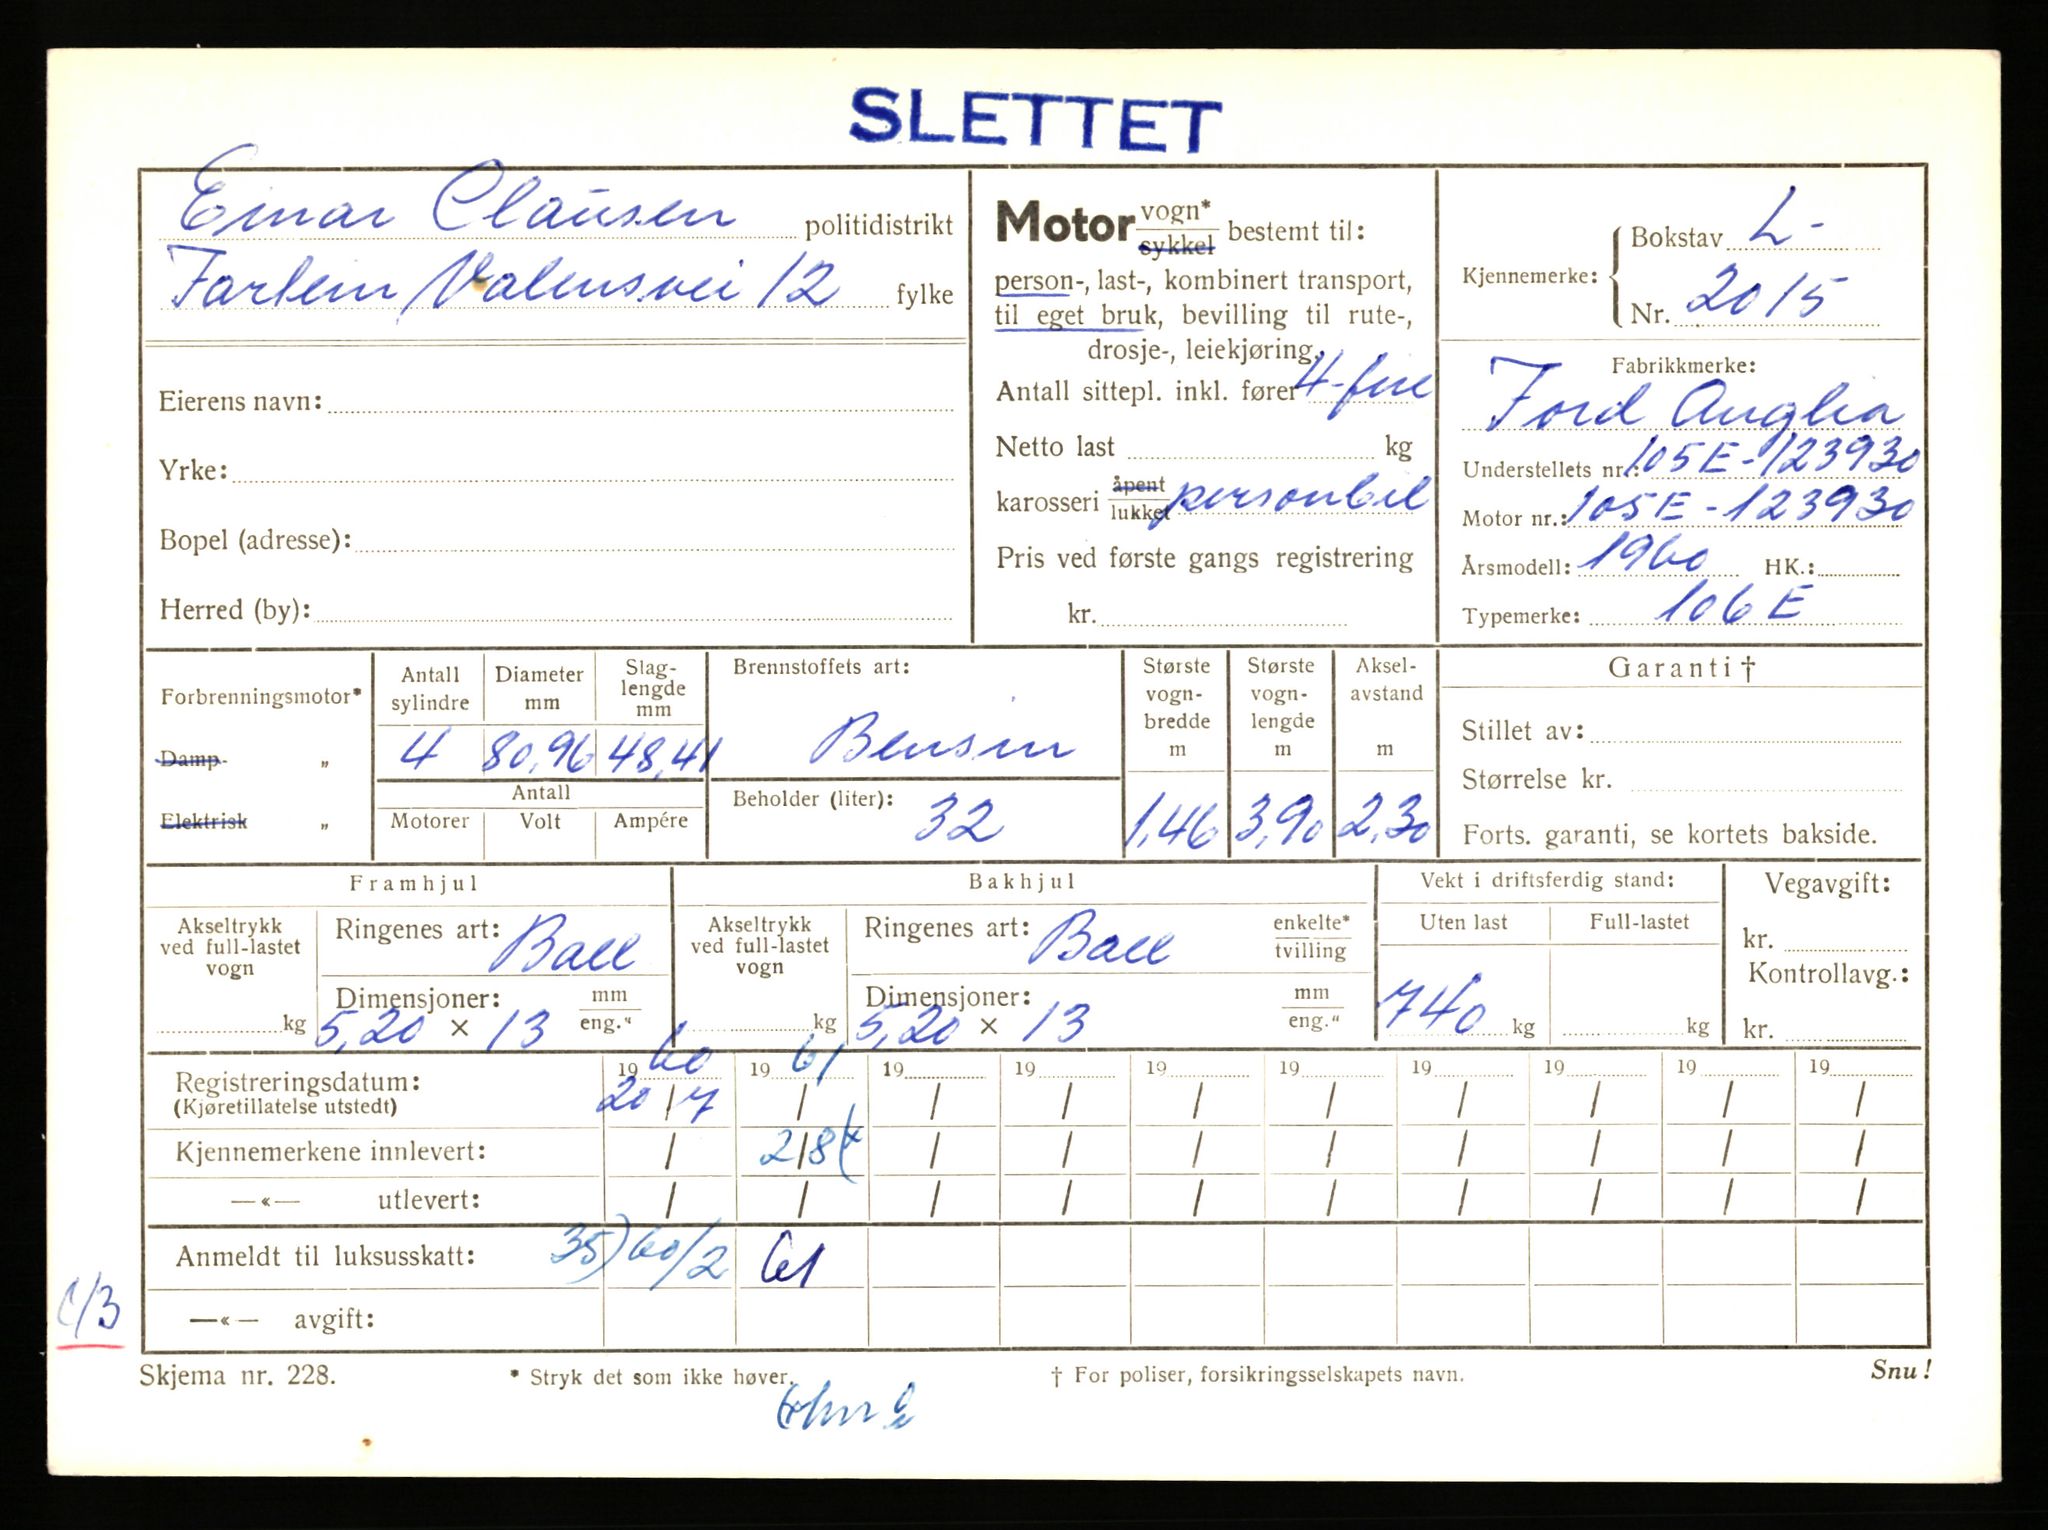 SLETTET
Einar Clausen politidistrikt
Valensvei 12 fylke
Eierens navn:
Yrke:
Bopel (adresse):
Herred (by):
Motor vogn* sykkel bestemt til:
person-, last-, kombinert transport,
til eget bruk, bevilling til rute-,
drosje-, leiekjøring.
Antall sittepl. inkl. fører 4-fire
Netto last kg
karosseri åpent lukket personbil
Pris ved første gangs registrering
kr.
Kjennemerke: Bokstav L-
Nr. 2015
Fabrikkmerke:
Ford Anglia
Understellets nr.: 105E-123930
Motor nr.: 105E-123930
Årsmodell: 1960 HK.:
Typemerke: 106 E
Forbrenningsmotor*
Damp- „
Elektrisk „
Antall sylindre
4
Diameter mm
80,96
Slag-lengde mm
48,41
Antall
Motorer Volt Ampére
Brennstoffets art:
Bensin
Beholder (liter):
32
Største vogn-bredde m
1,46
Største vogn-lengde m
3,90
Aksel-avstand m
2,30
Garanti †
Stillet av:
Størrelse kr.
Forts. garanti, se kortets bakside.
Framhjul
Akseltrykk ved full-lastet vogn
kg
Ringenes art: Ball
Dimensjoner: mm eng."
5,20 × 13
Bakhjul
Akseltrykk ved full-lastet vogn
kg
Ringenes art: Ball enkelte* tvilling
Dimensjoner: mm eng."
5,20 × 13
Vekt i driftsferdig stand:
Uten last Full-lastet
740 kg kg
Vegavgift:
kr.
Kontrollavg.:
kr.
19 60 19 61 19 19 19 19 19 19 19 19
Registreringsdatum: 20/7 / / / / / / / / /
(Kjøretillatelse utstedt)
Kjennemerkene innlevert: / 2/8 / / / / / / / /
—«— utlevert: / / / / / / / / / /
Anmeldt til luksusskatt: 35) 60/2 61
—«— avgift:
Skjema nr. 228. * Stryk det som ikke høver. † For poliser, forsikringsselskapets navn. Snu!